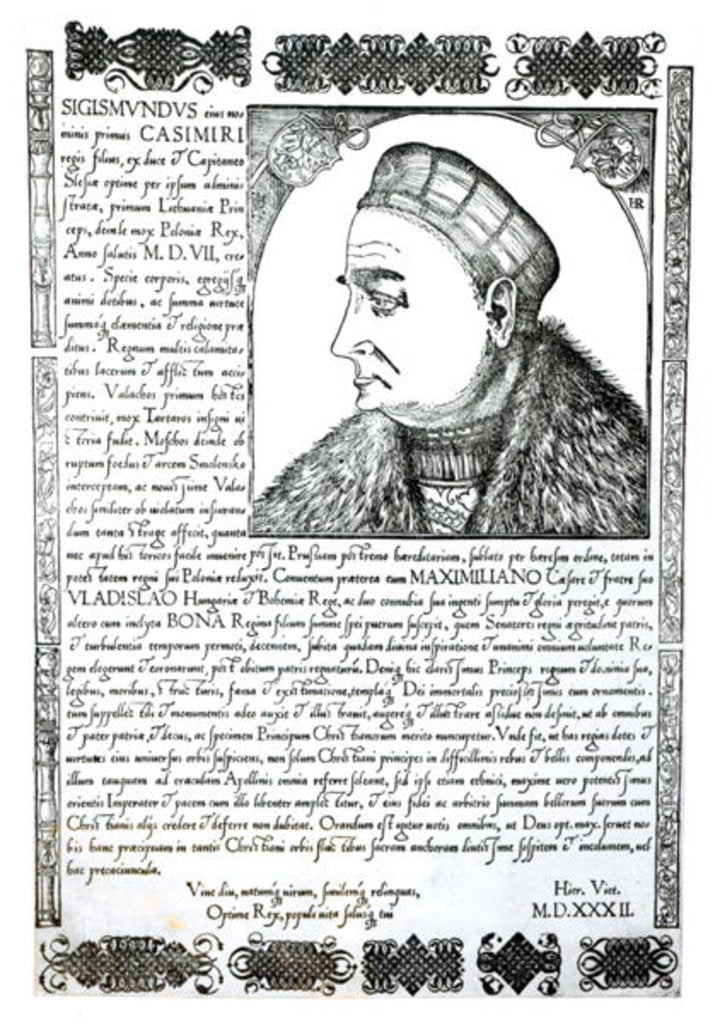 SIGISMVNDVS eius no
minis primus CASIMIRI
regis filius, ex duce & Capitaneo
Slesiæ optime per ipsum admini
stratæ, primum Lithuaniæ Prin
ceps, deinde mox Poloniæ Rex,
Anno salutis M. D. VII, cre
atus. Specie corporis, egregijsq
animi dotibus, ac summa uirtute
summaq clæmentia & religione præ
ditus. Regnum multis calamita
tibus lacerum & afflictum acci
piens. Valachos primum hostes
contriuit, mox Tartaros insigni ui
ctoria fudit. Moschos deinde ob
ruptum foedus & arcem Smolensko
interceptam, ac nouissime Vala
chos similiter ob uiolatum iusiuran
dum tanta strage affecit, quanta
HR
nec apud historicos facile inuenire possit. Prussiam postremo hæreditariam, sublato per hæresim ordine, totam in
potestatem regni sui Poloniæ reduxit. Conuentum præterea cum MAXIMILIANO Cæsare & fratre suo
VLADISLAO Hungariæ & Bohemiæ Rege, ac duo connubia sua ingenti sumptu & gloria peregit, e quorum
altero cum inclyta BONA Regina filium summæ spei puerum suscepit, quem Senatores regni ægritudine patris,
& turbulentia temporum permoti, decennem, subita quadam diuina inspiratione & unanimi omnium uoluntate Re
gem elegerunt & coronarunt, post obitum patris regnaturum. Denique hic clarissimus Princeps regnum & dominia sua,
legibus, moribus, structuris, fama & existimatione, templaq Dei immortalis preciosissimis cum ornamentis.
tum suppellectili & monumentis adeo auxit & illustrauit, augereq & illustrare assidue non desinit, ut ab omnibus
& pater patriæ, & decus, ac specimen Principum Christianorum merito nuncupetur. Vnde fit, ut has regias dotes &
uirtutes eius uniuersus orbis suspiciens, non solum Christiani principes in difficillimis rebus & bellis componendis, ad
illum tanquam ad oraculum Apollinis omnia referre soleant, sed ipsi etiam ethnici, maxime uero potentissimus
orientis Imperator & pacem cum illo libenter amplectitur, & eius fidei ac arbitrio summam bellorum suorum cum
Christianis alijs credere & deferre non dubitat. Orandum est igitur uotis omnibus, ut Deus opt. max. seruet no
bis hanc præcipuam in tantis Christiani orbis fluctibus sacram anchoram diutissime sospitem & incolumem, uel
hac precatiuncula.
Viue diu, natumq uirum, similemq relinquas,
Optime Rex, populi uita salusq tui
Hier. Viet.
M.D.XXXII.